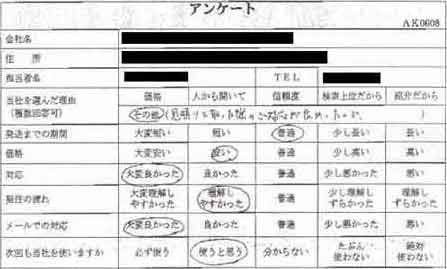 アンケート
AK0608
会社名
住 所
担当者名 TEL
当社を選んだ理由 価格 人から聞いて 信頼度 検索上位だから 紹介だから
(複数回答可) その他 (見積りを取った際の対応が
発送までの期間 大変短い 短い 普通 少し長い 長い
価格 大変安い 安い 普通 少し高い 高い
対応 大変良かった 良かった 普通 少し悪かった 悪い
発注の流れ 大変理解しやすかった 理解しやすかった 普通 少し理解しずらかった 理解しずらかった
メールでの対応 大変良かった 良かった 普通 少し悪かった 悪い
次回も当社を使いますか 必ず使う 使うと思う 分からない たぶん使わない 絶対使わない